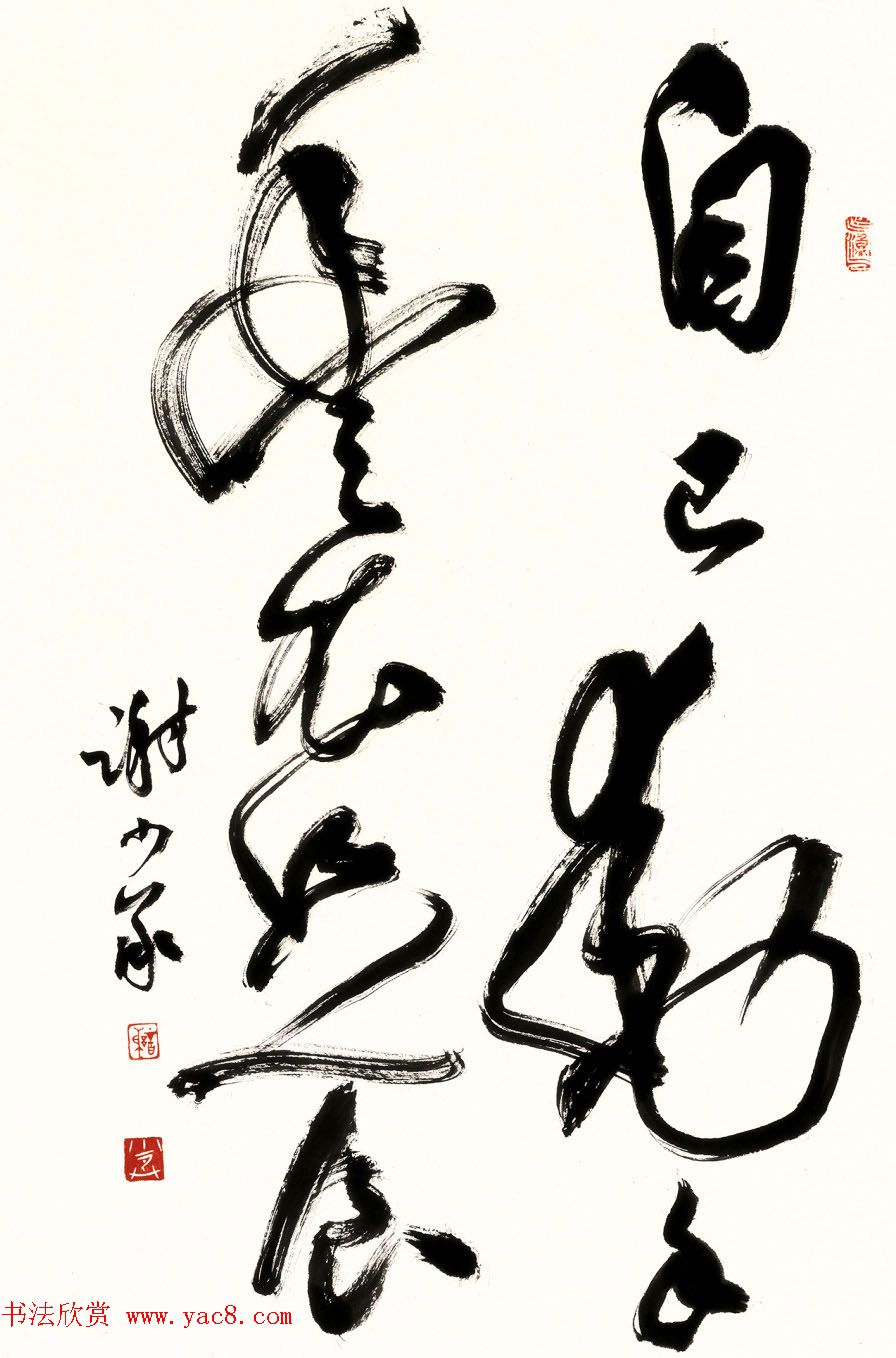 自己动手
丰衣足食
谢少承
书法欣赏 www.yac8.com